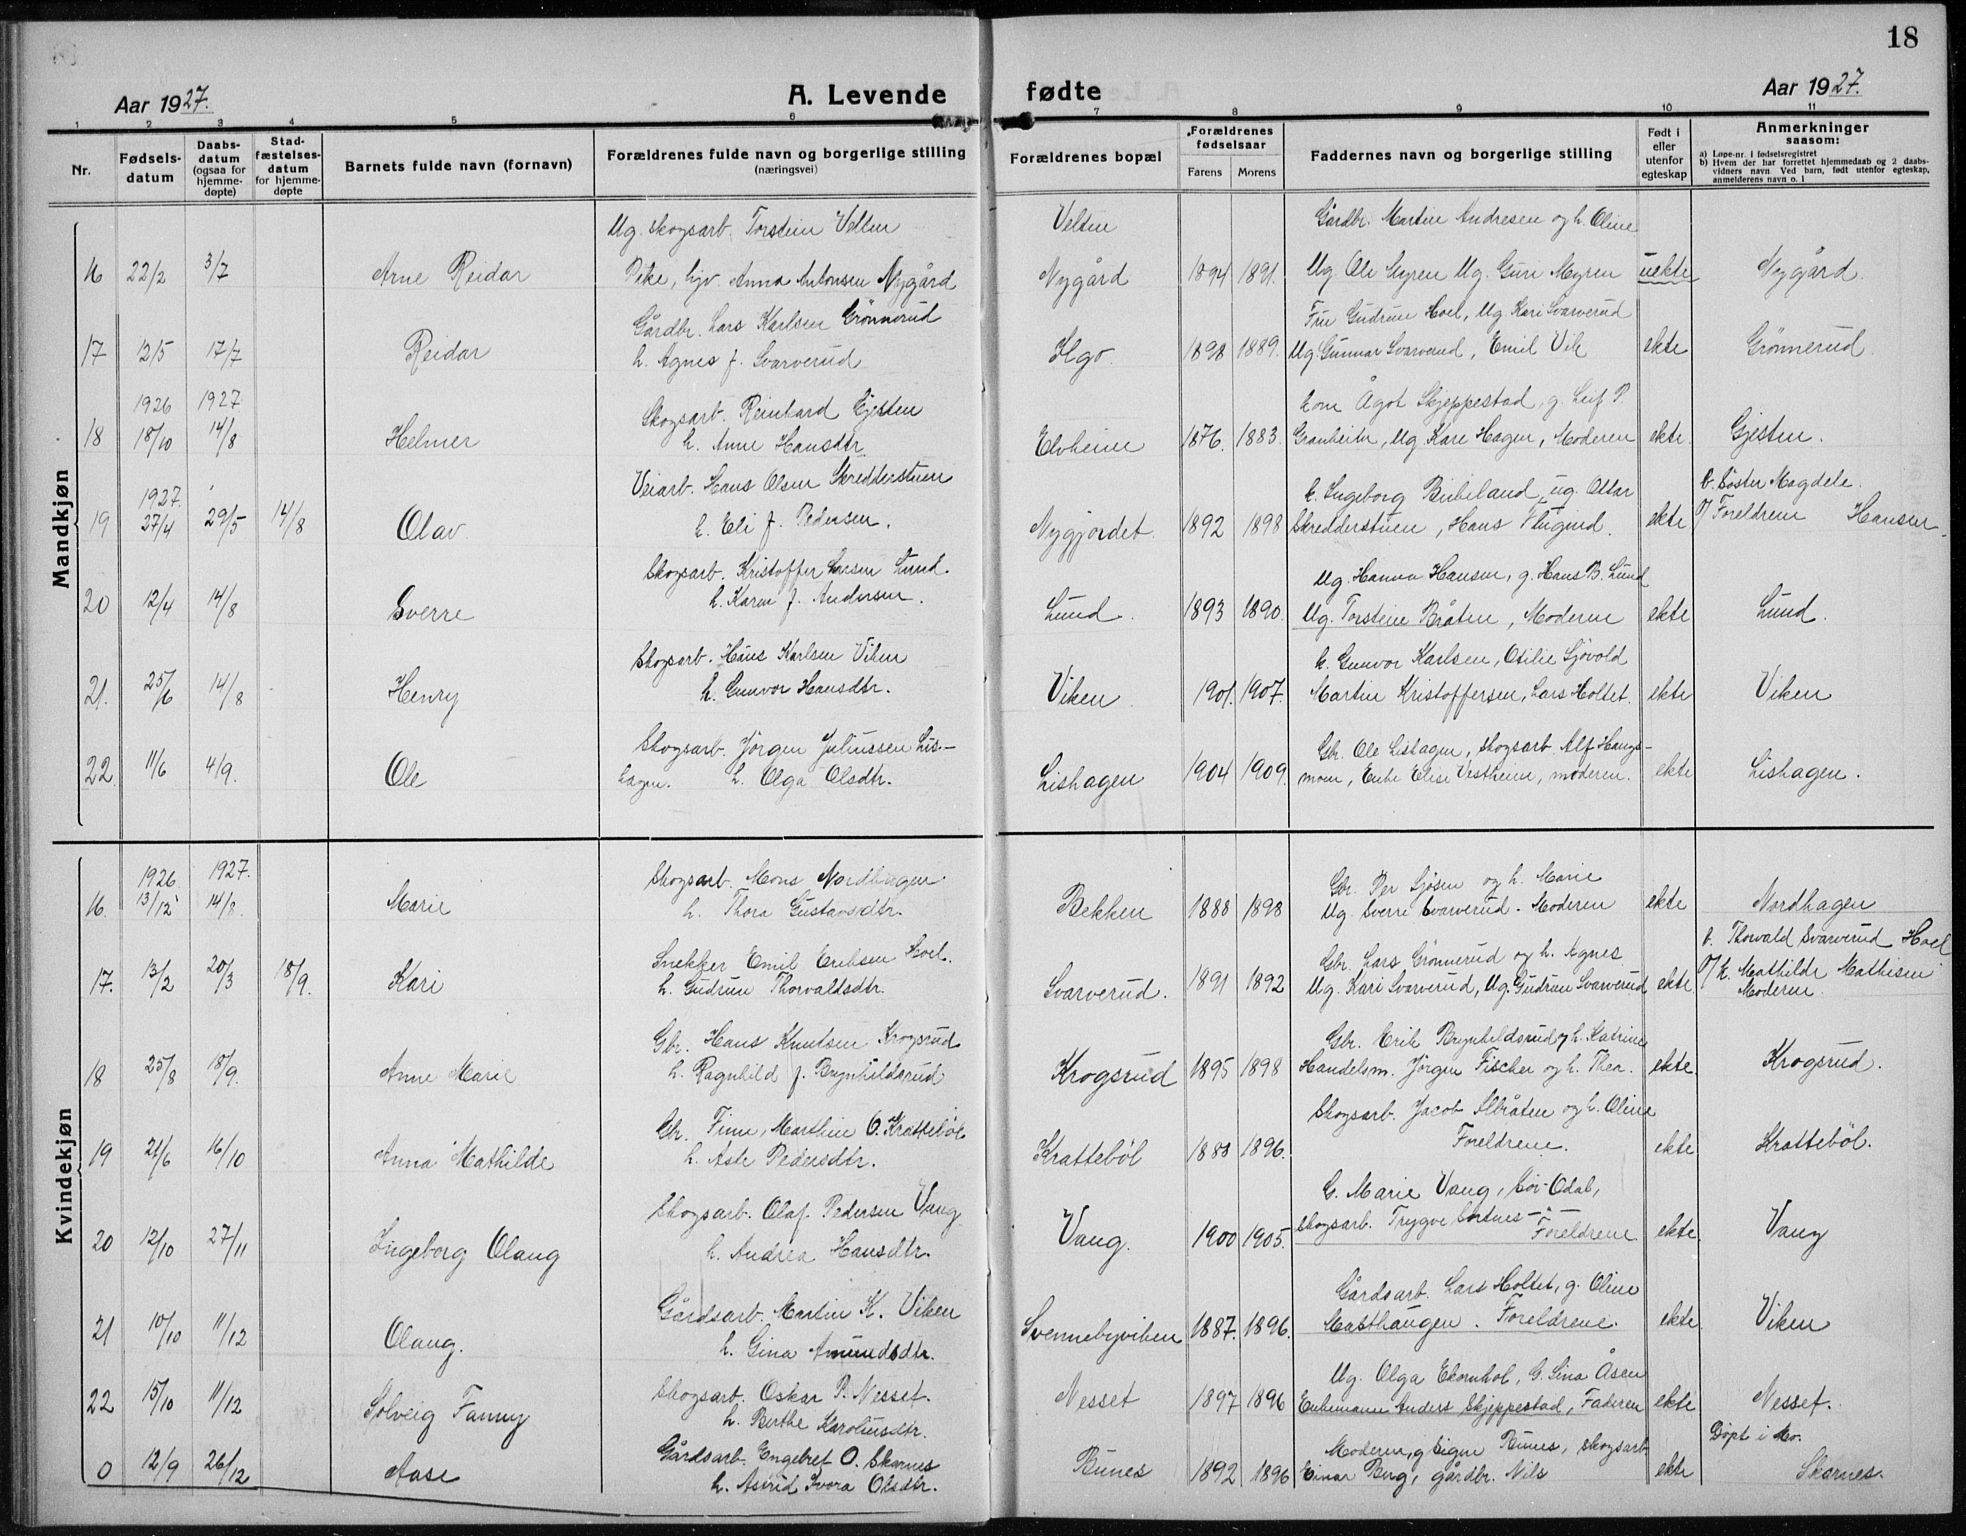 18
Aar 1927.
A. Levende
fødte
Aar 1927.
1 2 3 4 5 6 7 8 9 10 11
Nr.
Fødsels-
datum
Daabs-
datum
(ogsaa for
hjemme-
døpte)
Stad-
fæstelses-
datum
for hjemme-
døpte
Barnets fulde navn (fornavn)
Forældrenes fulde navn og borgerlige stilling
(næringsvei)
Forældrenes bopæl
Forældrenes
fødselsaar
Farens Morens
Faddernes navn og borgerlige stilling
Født i
eller
utenfor
egteskap
Anmerkninger
saasom:
a) Løpe-nr. i fødselsregistret
b) Hvem der har forrettet hjemmedaab og 2 daabs-
vidners navn. Ved barn, født utenfor egteskap,
anmelderens navn o. l
Mandkjøn
Ug. skogsarb. Torstein Velten Velten Gårdbr. Martin Andresen og h. Oline
16 22/2 3/7 Arne Reidar Pike, Anna Antonsen Nygård Nygård 1894 1891. Ug. Ole Myren Ug. Guri Myren uekte Nygård.
Gårdbr. Lars Karlsen Grönnerud Fru Gudrun Hoel, Ug. Kari Svarverud
17 12/5 17/7 Reidar h. Agnes f. Svarverud 1898 1889. Ug. Gunnar Svarverud, Emil Vik ekte Grönnerud
1926 1927. Skogsarb. Reinhard Gjesten Ågot Skjeppestad, g. Leif P.
18 18/10 14/8 Helmer h. Anne Hansdtr. Elvheim 1876. 1883. Granheim, Ug Kare Hagen, Moderen ekte. Gjesten.
1927. Veiarb. Hans Olsen Skredderstuen k. Ingeborg Birkeland, ug. Ottar b. Söster Magdele.
19 27/4 29/5 14/8 Olav h. Eli f. Pedersen. Nygjordet. 1892 1898 Skredderstuen, Hans Flugind. ekte f/ Foreldrene Hansen.
Skogsarb. Kristoffer Larsen Lund. Ug. Hanna Hansen, g. Hans B. Lund
20 12/4 14/8 Sverre h. Karen f. Andersen. Lund. 1893 1890. Ug. Torstein Bråten, Moderen ekte Lund.
Skogsarb. Hans Karlsen Viken k. Gunvor Karlsen, Otilie Sjövold
21. 25/6 14/8 Henry h. Gunvor Hansdtr. Viken 1901. 1907. Martin Kristoffersen, Lars Holtet. ekte Viken
Skogsarb. Jörgen Juliussen Lis- Gbr. Ole Lishagen, skogsarb. Alf Haugs-
22. 11/6 4/9. Ole hagen. h. Olga Olsdtr. Lishagen 1904 1909. moen, Enke Elise Vestheim, moderen. ekte Lishagen.
Kvindekjøn
1926. 1927. Skogsarb. Mons Nordhagen. Gbr. Per Sjösen og h. Marie
16. 13/12 14/8. Marie h. Thora Gustavsdtr. Bekken 1888 1898 Ug. Sverre Svarverud. Moderen ekte Nordhagen
Snekker Emil Eriksen Hoel. Gbr. Lars Grönnerud og h. Agnes b. Thorvald Svarverud Hoel
17. 13/2 20/3 18/9. Kari h. Gudrun Thorvaldsdtr. Svarverud. 1891 1892 Ug. Kari Svarverud, Ug. Gudrun Svarverud ekte f/ k. Mathilde Mathisen
Moderen.
Gbr. Hans Knutsen Krogsrud Gbr. Erik Brynhildsrud og h. Katrine
18 25/8 18/9. Anne Marie h. Ragnhild f. Brynhildsrud Krogsrud 1895 1898 Handelsm. Jörgen Fischer og h. Thea. ekte. Krogsrud.
Gbr. Finn, Marthin O. Krattebøl Skogsarb. Jacob Albråten og h. Oline
19 21/6 16/10 Anna Mathilde h. Aste Pedersdtr. Krattebøl 1888 1896. Foreldrene. ekte Krattebøl.
Skogsarb. Olaf Pedersen Vang G. Marie Vang, Sör-Odal,
20 12/10 27/11 Ingeborg Olaug h. Andrea Hansdtr. Vang. 1900 1905. skogsarb. Trygve Sortnes - " - Foreldrene ekte Vang
Gårdsarb. Martin K. Viken Gårdsarb. Lars Holtet, g. Oline
21 10/10 11/12 Olaug. h. Gina Amundsdtr. Svennebyviken 1887. 1896. Masthaugen. Foreldrene. ekte Viken
Skogsarb. Oskar P. Nesset. Ug. Olga Ekornhol, G. Gina Åsen
22 15/10 11/12 Solveig Fanny h. Berthe Karoliusdtr. Nesset 1897 1896 Enkemann Anders Skjeppestad, Faderen ekte Nesset.
Gårdsarb. Engebret O. Skarnes Moderen, g Signe Bunes, skogsarb Döpt i Mo.
0 12/9 26/12 Aase h. Astrid Svora Olsdtr. Bunes 1892 1896 Einar Berg, gårdbr. Nils ekte Skarnes.